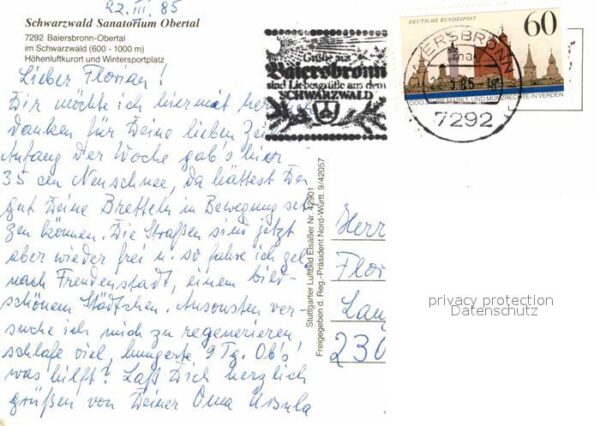 22.III.85
Schwarzwald Sanatorium Obertal
7292 Baiersbronn-Obertal
im Schwarzwald (600 - 1000 m)
Höhenluftkurort und Wintersportplatz
Lieber Florian!
Dir möchte ich hiermit her
danken für Deine lieben Zei
Anfang der Woche gab's hier
35 cm Neuschnee, da hättest Du
gut Deine Bretteln in Bewegung set-
zen können. Die Straßen sind jetzt
aber wieder frei u. so fahre ich gel
nach Freudenstadt, einem bild-
schönem Städtchen. Ansonsten ver-
suche ich mich zu regenerieren,
schlafe viel, hungerte 9 Tg. Ob's
was hilft? Laß Dich herzlich
grüßen von Deiner Oma Ursula
Grüße aus
Baiersbronn
sind Liebesgrüße aus dem
SCHWARZWALD
DEUTSCHE BUNDESPOST
60
1000 JAHRE MARKT- UND MÜNZRECHTE IN VERDEN
BAIERSBRONN
7292
Stuttgarter Luftbild Elsäßer Nr. 42901
Freigegeben d. Reg.-Präsident Nord-Württ. 9/42057
Herr
Flor
Lan
230
privacy protection
Datenschutz